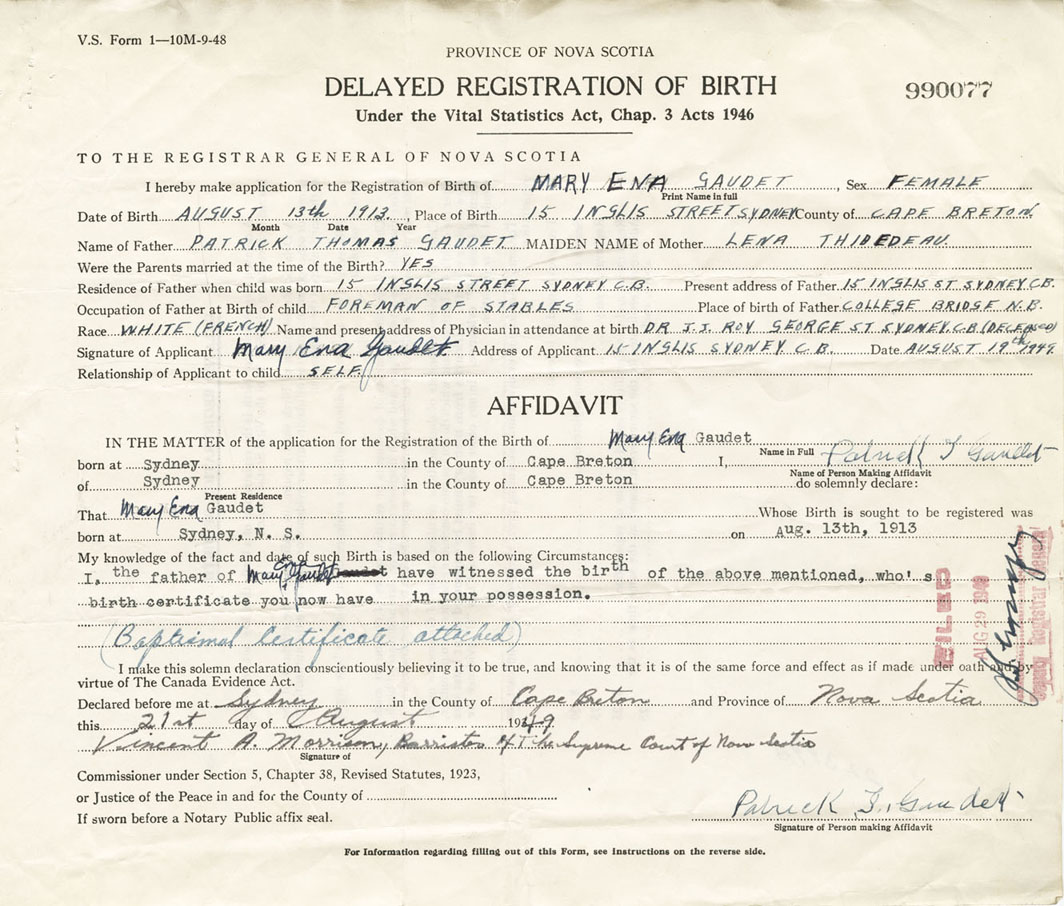 V.S. Form 1—10M-9-48
PROVINCE OF NOVA SCOTIA
DELAYED REGISTRATION OF BIRTH
990077
Under the Vital Statistics Act, Chap. 3 Acts 1946
TO THE REGISTRAR GENERAL OF NOVA SCOTIA
I hereby make application for the Registration of Birth of MARY ENA GAUDET, Sex FEMALE
Print Name in full
Date of Birth AUGUST 13th 1913, Place of Birth 15 INGLIS STREET SYDNEY County of CAPE BRETON
Month Date Year
Name of Father PATRICK THOMAS GAUDET MAIDEN NAME of Mother LENA THIBEDEAU
Were the Parents married at the time of the Birth? YES
Residence of Father when child was born 15 INGLIS STREET SYDNEY C.B. Present address of Father 15 INGLIS ST. SYDNEY C.B.
Occupation of Father at Birth of child FOREMAN OF STABLES Place of birth of Father COLLEGE BRIDGE N.B.
Race WHITE (FRENCH) Name and present address of Physician in attendance at birth DR J.J. ROY GEORGE ST SYDNEY C.B (DECEASED)
Signature of Applicant Mary Ena Gaudet Address of Applicant 15 INGLIS SYDNEY C.B. Date AUGUST 19th 1949
Relationship of Applicant to child SELF
AFFIDAVIT
IN THE MATTER of the application for the Registration of the Birth of Mary Ena Gaudet
Name in Full
born at Sydney in the County of Cape Breton I, Patrick T Gaudet
Name of Person Making Affidavit
of Sydney in the County of Cape Breton do solemnly declare:
Present Residence
That Mary Ena Gaudet Whose Birth is sought to be registered was
born at Sydney, N. S. on Aug. 13th, 1913
My knowledge of the fact and date of such Birth is based on the following Circumstances:
I, the father of Mary Ena Gaudet have witnessed the birth of the above mentioned, who's
birth certificate you now have in your possession.
(Baptismal Certificate attached)
FILED
AUG 29 1949
Deputy Registrar General
I make this solemn declaration conscientiously believing it to be true, and knowing that it is of the same force and effect as if made under oath and by
virtue of The Canada Evidence Act.
Declared before me at Sydney in the County of Cape Breton and Province of Nova Scotia
this 21st day of August 1949
Vincent A. Morrison, Barrister of The Supreme Court of Nova Scotia
Signature of
Commissioner under Section 5, Chapter 38, Revised Statutes, 1923,
or Justice of the Peace in and for the County of
Patrick T. Gaudet
If sworn before a Notary Public affix seal.
Signature of Person making Affidavit
For Information regarding filling out of this Form, see Instructions on the reverse side.